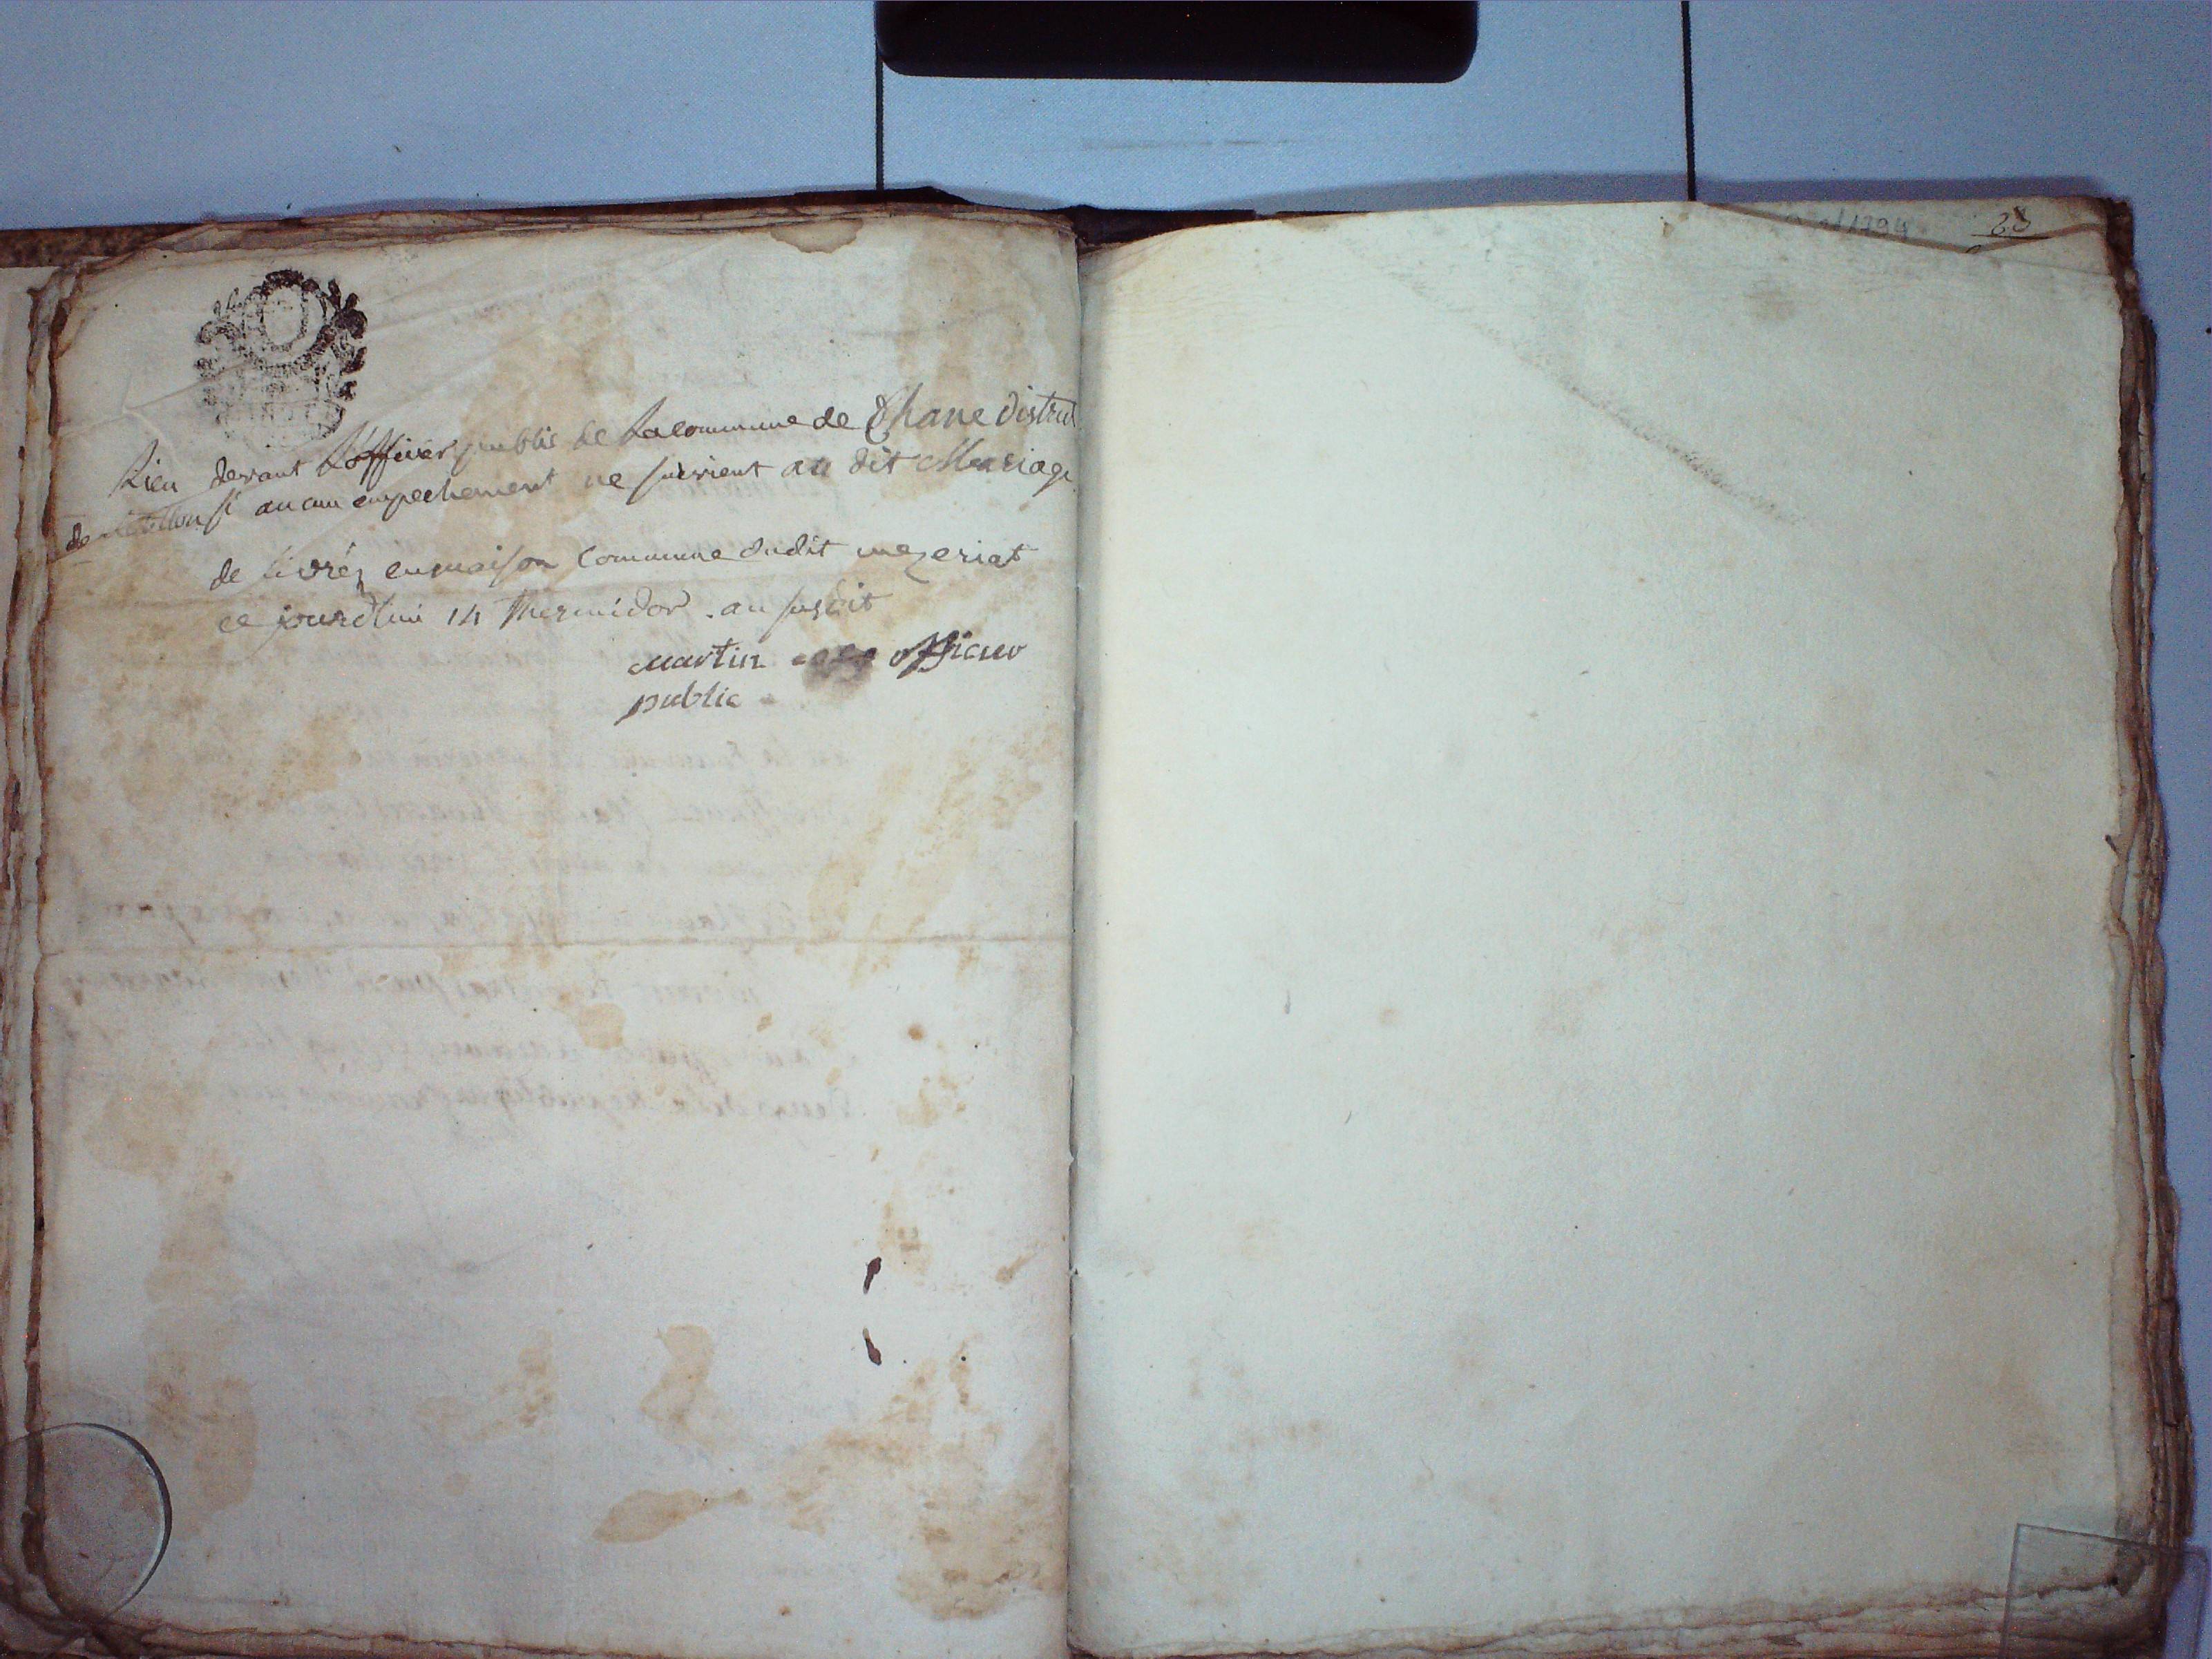 Lieu devant L'officier public de La commune de Thane district
de si aucun empechement ne survient au dit Mariage
de Livréz en maison Commune dudit mezeriat
ce jourdhui 14 Thermidor . an susdit
Martin officier
public
1794
23